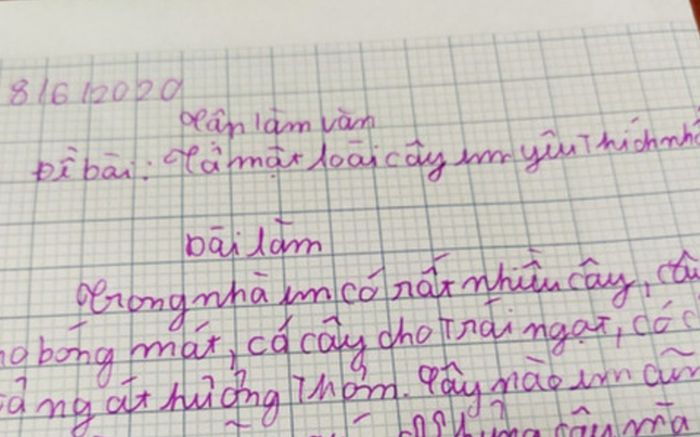 8/6/2020
Tập làm văn
Đề bài: Tả một loài cây em yêu thích nhất
Bài làm
Trong nhà em có rất nhiều cây, cây
bóng mát, có cây cho trái ngọt, có c
ngát hương thơm. Cây nào em cũn
cây mà